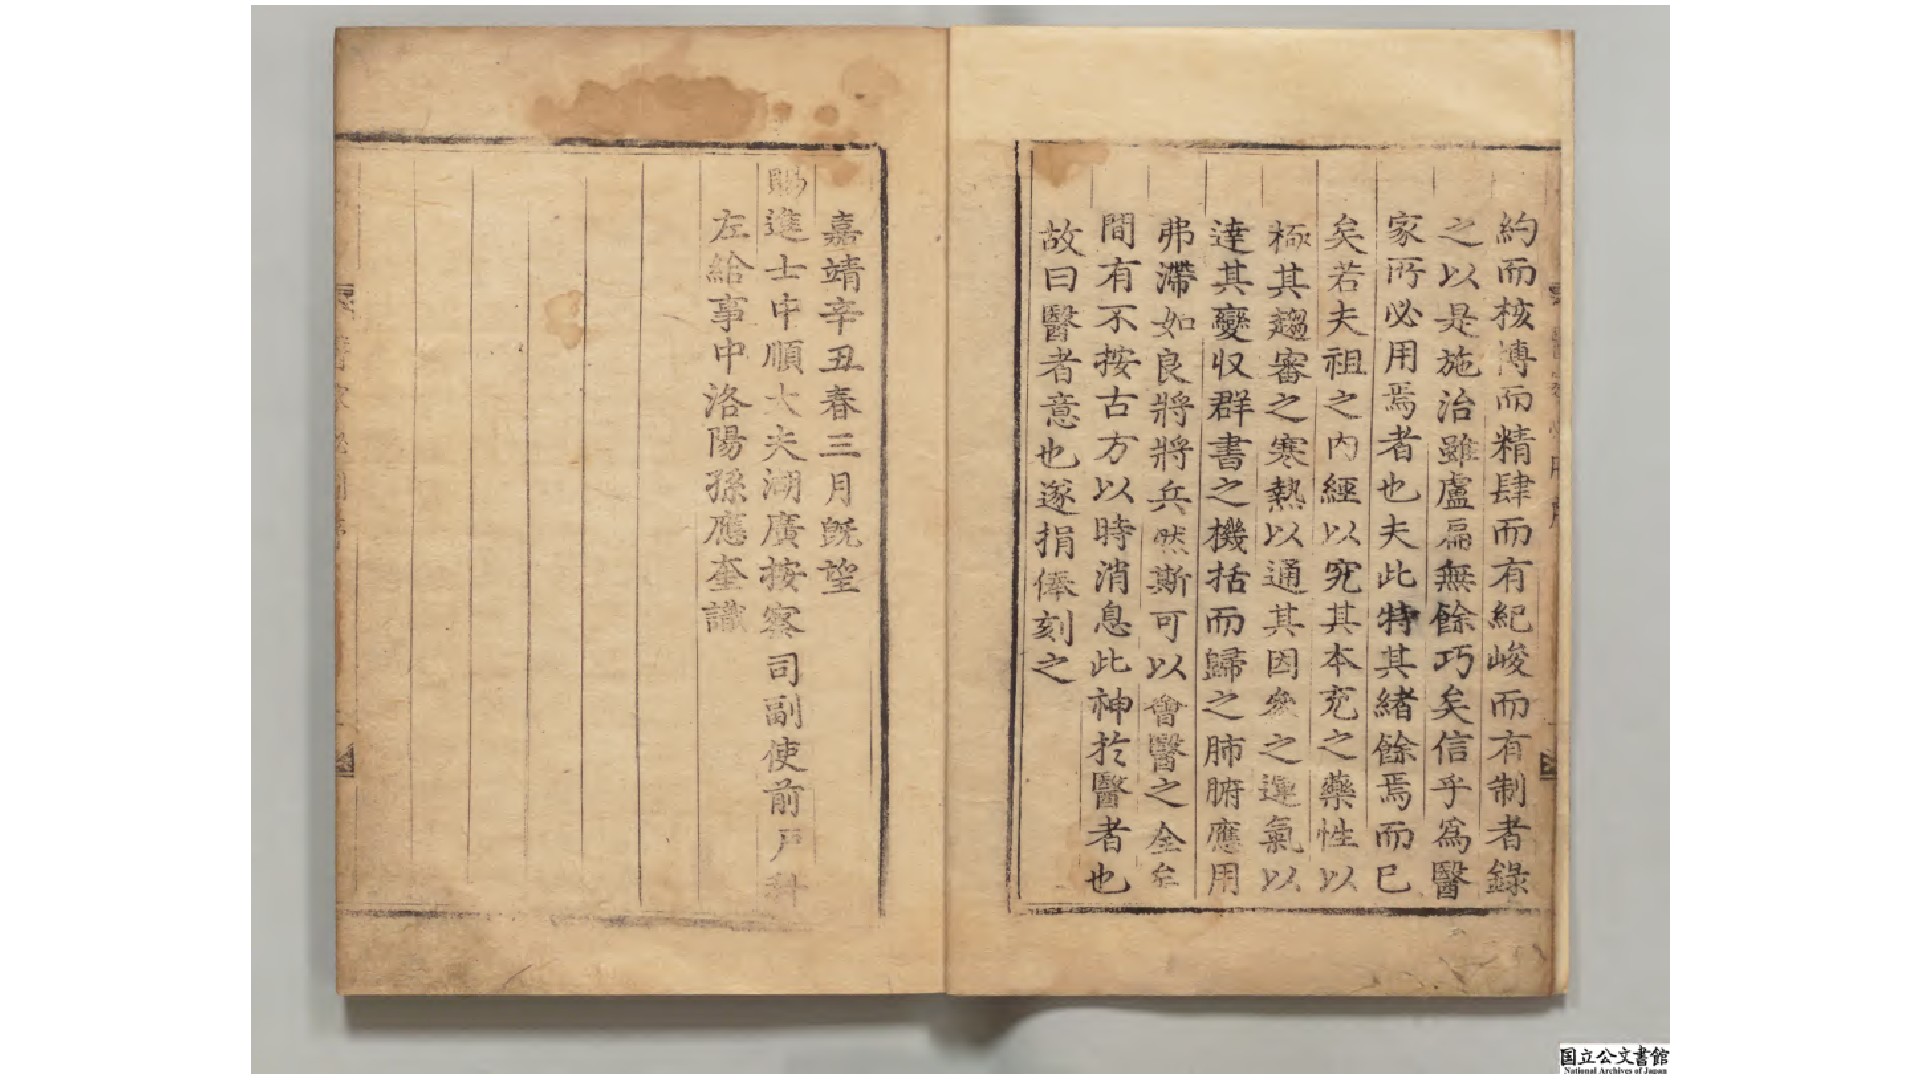 約而核博而精肆而有紀峻而有制者錄
之以是施治雖盧扁無餘巧矣信乎爲醫
家所必用焉者也夫此特其緒餘焉而已
矣若夫祖之內經以究其本充之藥性以
極其趨審之寒熱以通其因參之運氣以
達其變収群書之機括而歸之肺腑應用
弗滯如良將將兵然斯可以會醫之全矣
間有不按古方以時消息此神於醫者也
故曰醫者意也遂捐俸刻之
嘉靖辛丑春三月旣望
賜進士中順大夫湖廣按察司副使前戶科
左給事中洛陽孫應奎識
国立公文書館
National Archives of Japan